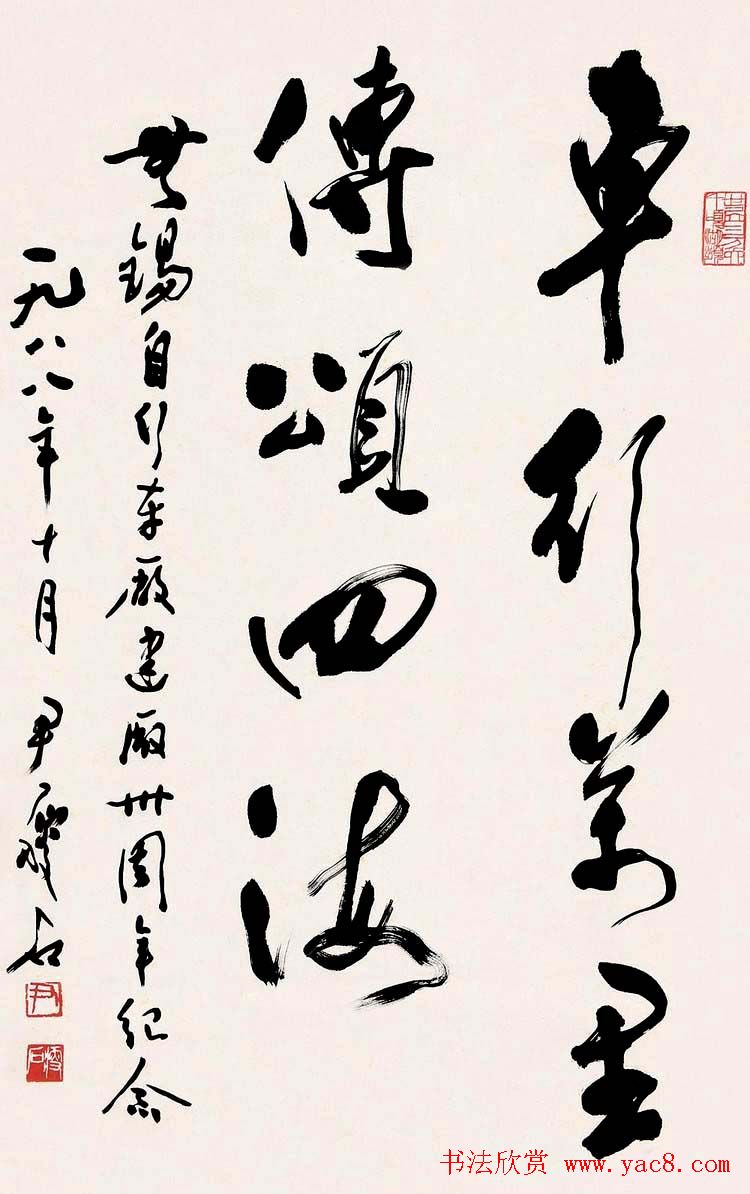 車行萬里
傳頌四海
無錫自行車廠建廠卅周年紀念
一九八八年十月 尹瘦石
尹
瘦石
书法欣赏 www.yac8.com